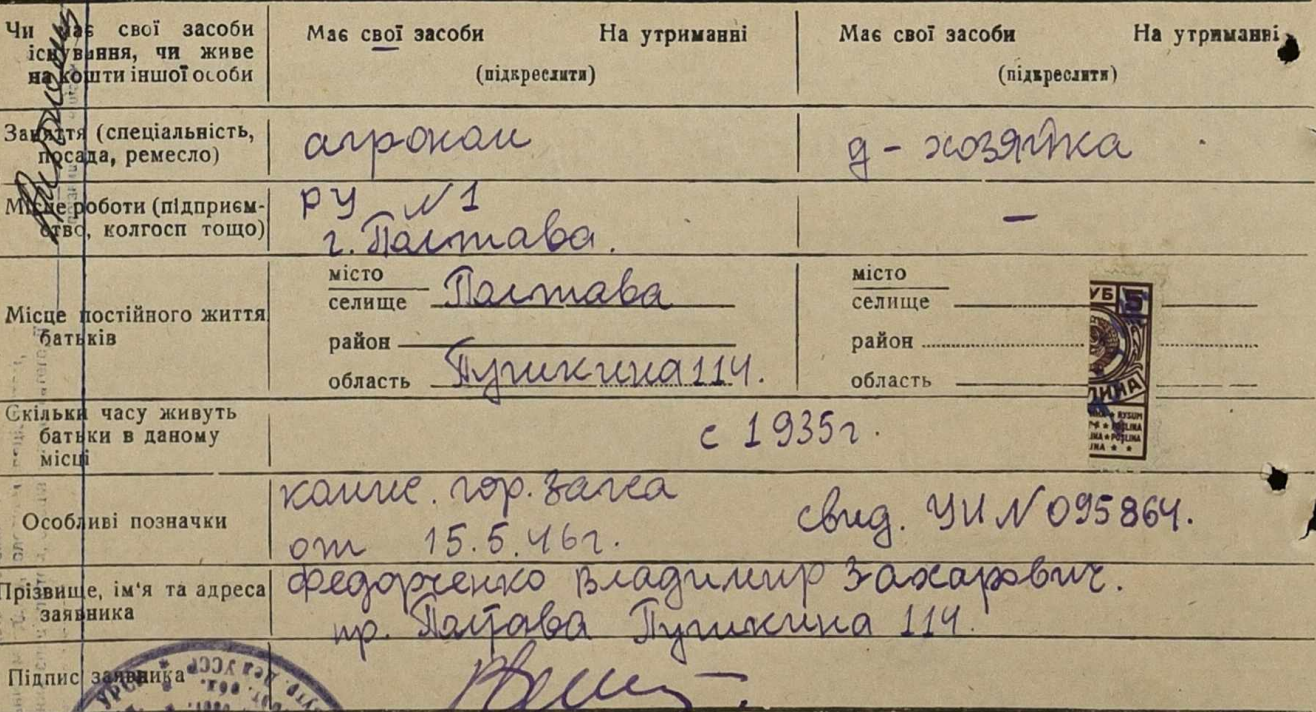 Чи має свої засоби існування, чи живе на кошти іншої особи
Має свої засоби На утриманні (підкреслити)
Має свої засоби На утриманні (підкреслити)
Заняття (спеціальність, посада, ремесло)
агроном
д - хозяйка
Місце роботи (підприємство, колгосп тощо)
РУ N 1
г. Полтава.
—
Місце постійного життя батьків
місто
селище Полтава
район
область Пушкина 114.
місто
селище
район
область
УБ 5
Скільки часу живуть батьки в даному місці
с 1935г.
Особливі позначки
комис. гор. загса
от 15.5.46г.
свид. УИ N 095864.
Прізвище, ім'я та адреса заявника
Федорченко Владимир Захарович.
пр. Полтава Пушкина 114.
Підпис заявника
УРСР